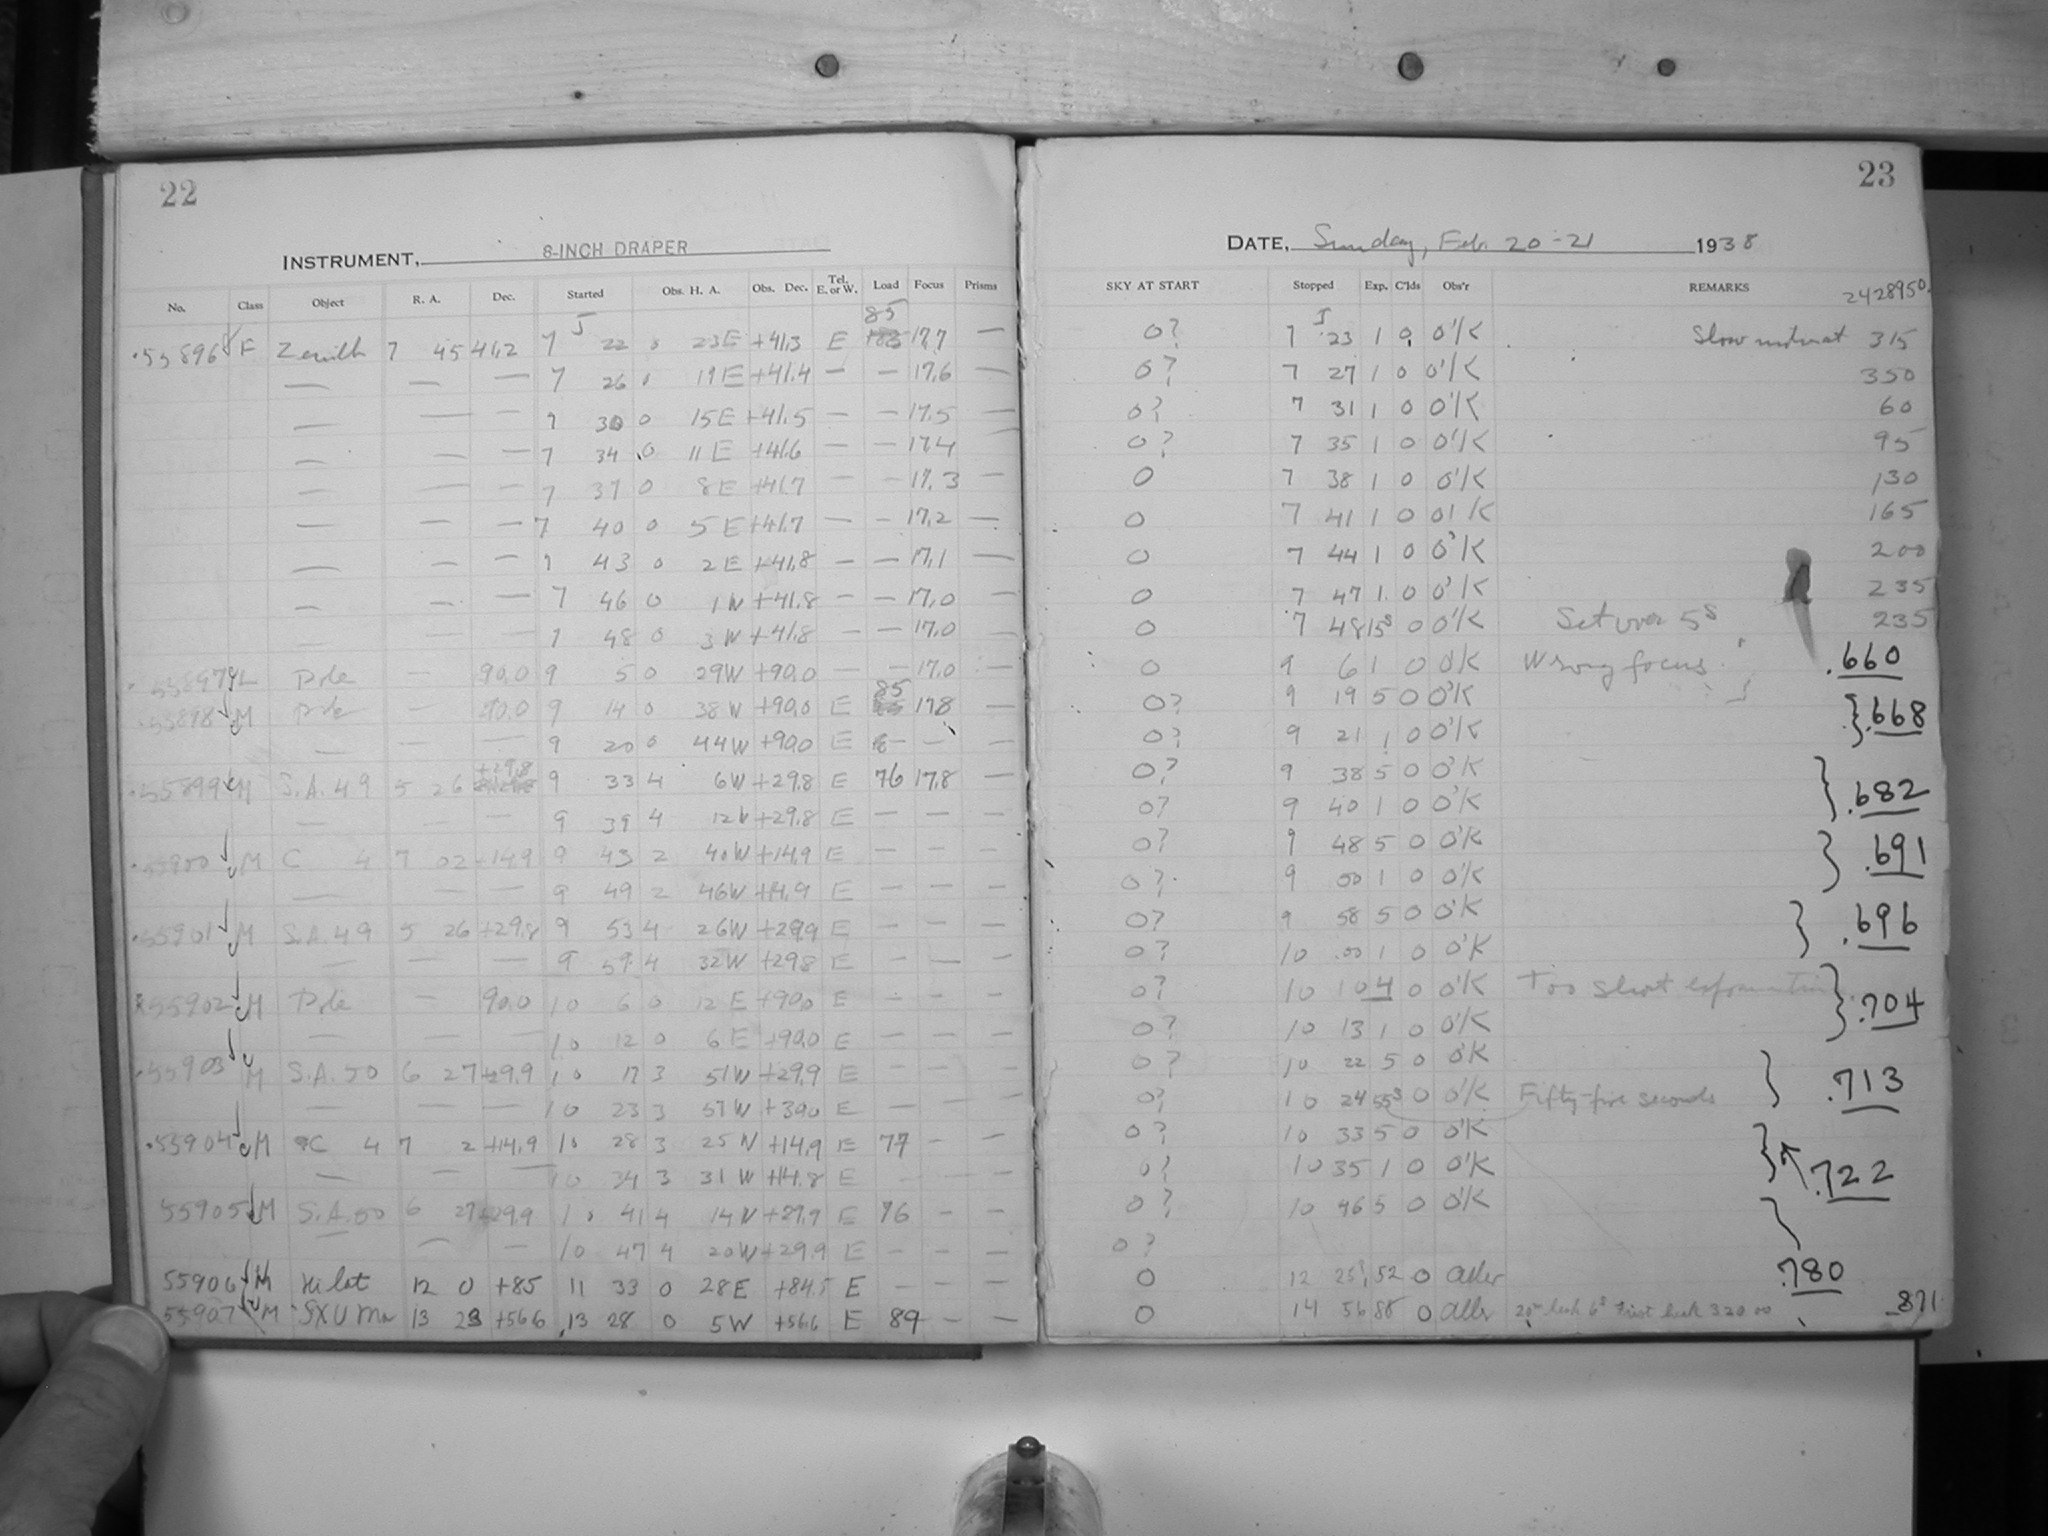 22
INSTRUMENT, 8-INCH DRAPER
No. Class Object R. A. Dec. Started Obs. H. A. Obs. Dec. Tel. E. or W. Load Focus Prisms
85
55896 F Zenith 7 45 41.2 7 22 0 23E +41.3 E 17.7 —
— — — 7 26 0 19E +41.4 — — 17.6 —
— — — 7 30 0 15E +41.5 — — 17.5 —
— — — 7 34 0 11E +41.6 — — 17.4 —
— — — 7 37 0 8E +41.7 — — 17.3 —
— — — 7 40 0 5E +41.7 — — 17.2 —
— — — 7 43 0 2E +41.8 — — 17.1 —
— — — 7 46 0 1W +41.8 — — 17.0 —
— — — 7 48 0 3W +41.8 — — 17.0 —
55897 L Pole — 90.0 9 5 0 29W +90.0 — — 17.0 —
85
55898 M Pole — 90.0 9 14 0 38W +90.0 E 17.8 —
— — — 9 20 0 44W +90.0 E — — —
+29.8
55899 M S.A. 49 5 26 9 33 4 6W +29.8 E 76 17.8 —
— — — 9 39 4 12W +29.8 E — — —
55900 M C 4 7 02 +14.9 9 43 2 40W +14.9 E — — —
— — — 9 49 2 46W +14.9 E — — —
55901 M S.A. 49 5 26 +29.8 9 53 4 26W +29.9 E — — —
— — — 9 59 4 32W +29.8 E — — —
55902 M Pole — 90.0 10 6 0 12E +90.0 E — — —
— — — 10 12 0 6E +90.0 E — — —
55903 M S.A. 50 6 27 +29.9 10 17 3 51W +29.9 E — — —
— — — 10 23 3 57W +30.0 E — — —
55904 M C 4 7 2 +14.9 10 28 3 25W +14.9 E 77 — —
— — — 10 34 3 31W +14.8 E — — —
55905 M S.A. 50 6 27 +29.9 10 41 4 14W +29.9 E 76 — —
— — — 10 47 4 20W +29.9 E — — —
55906 M Hi lat 12 0 +85 11 33 0 28E +84.5 E — — —
55907 M SX U Ma 13 23 +56.6 13 28 0 5W +56.6 E 89 — —
23
DATE, Sunday, Feb. 20-21 1938
SKY AT START Stopped Exp. C'lds Obs'r REMARKS 2428950.
0? 7 23 1 0 O'K Slow 315
0? 7 27 1 0 O'K 350
0? 7 31 1 0 O'K 60
0? 7 35 1 0 O'K 95
0 7 38 1 0 O'K 130
0 7 41 1 0 O'K 165
0 7 44 1 0 O'K 200
0 7 47 1 0 O'K 235
0 7 48 15s 0 O'K Set over 5s 235
0 9 6 1 0 O'K Wrong focus .660
0? 9 19 5 0 O'K
} .668
0? 9 21 1 0 O'K
0? 9 38 5 0 O'K
} .682
0? 9 40 1 0 O'K
0? 9 48 5 0 O'K
} .691
0? 9 50 1 0 O'K
0? 9 58 5 0 O'K
} .696
0? 10 00 1 0 O'K
0? 10 10 4 0 O'K Too short
} .704
0? 10 13 1 0 O'K
0? 10 22 5 0 O'K
} .713
0? 10 24 55s 0 O'K Fifty-five seconds
0? 10 33 5 0 O'K
} .722
0? 10 35 1 0 O'K
0? 10 46 5 0 O'K
0?
0 12 25 52 0 Aller .780
0 14 56 88 0 Aller .871